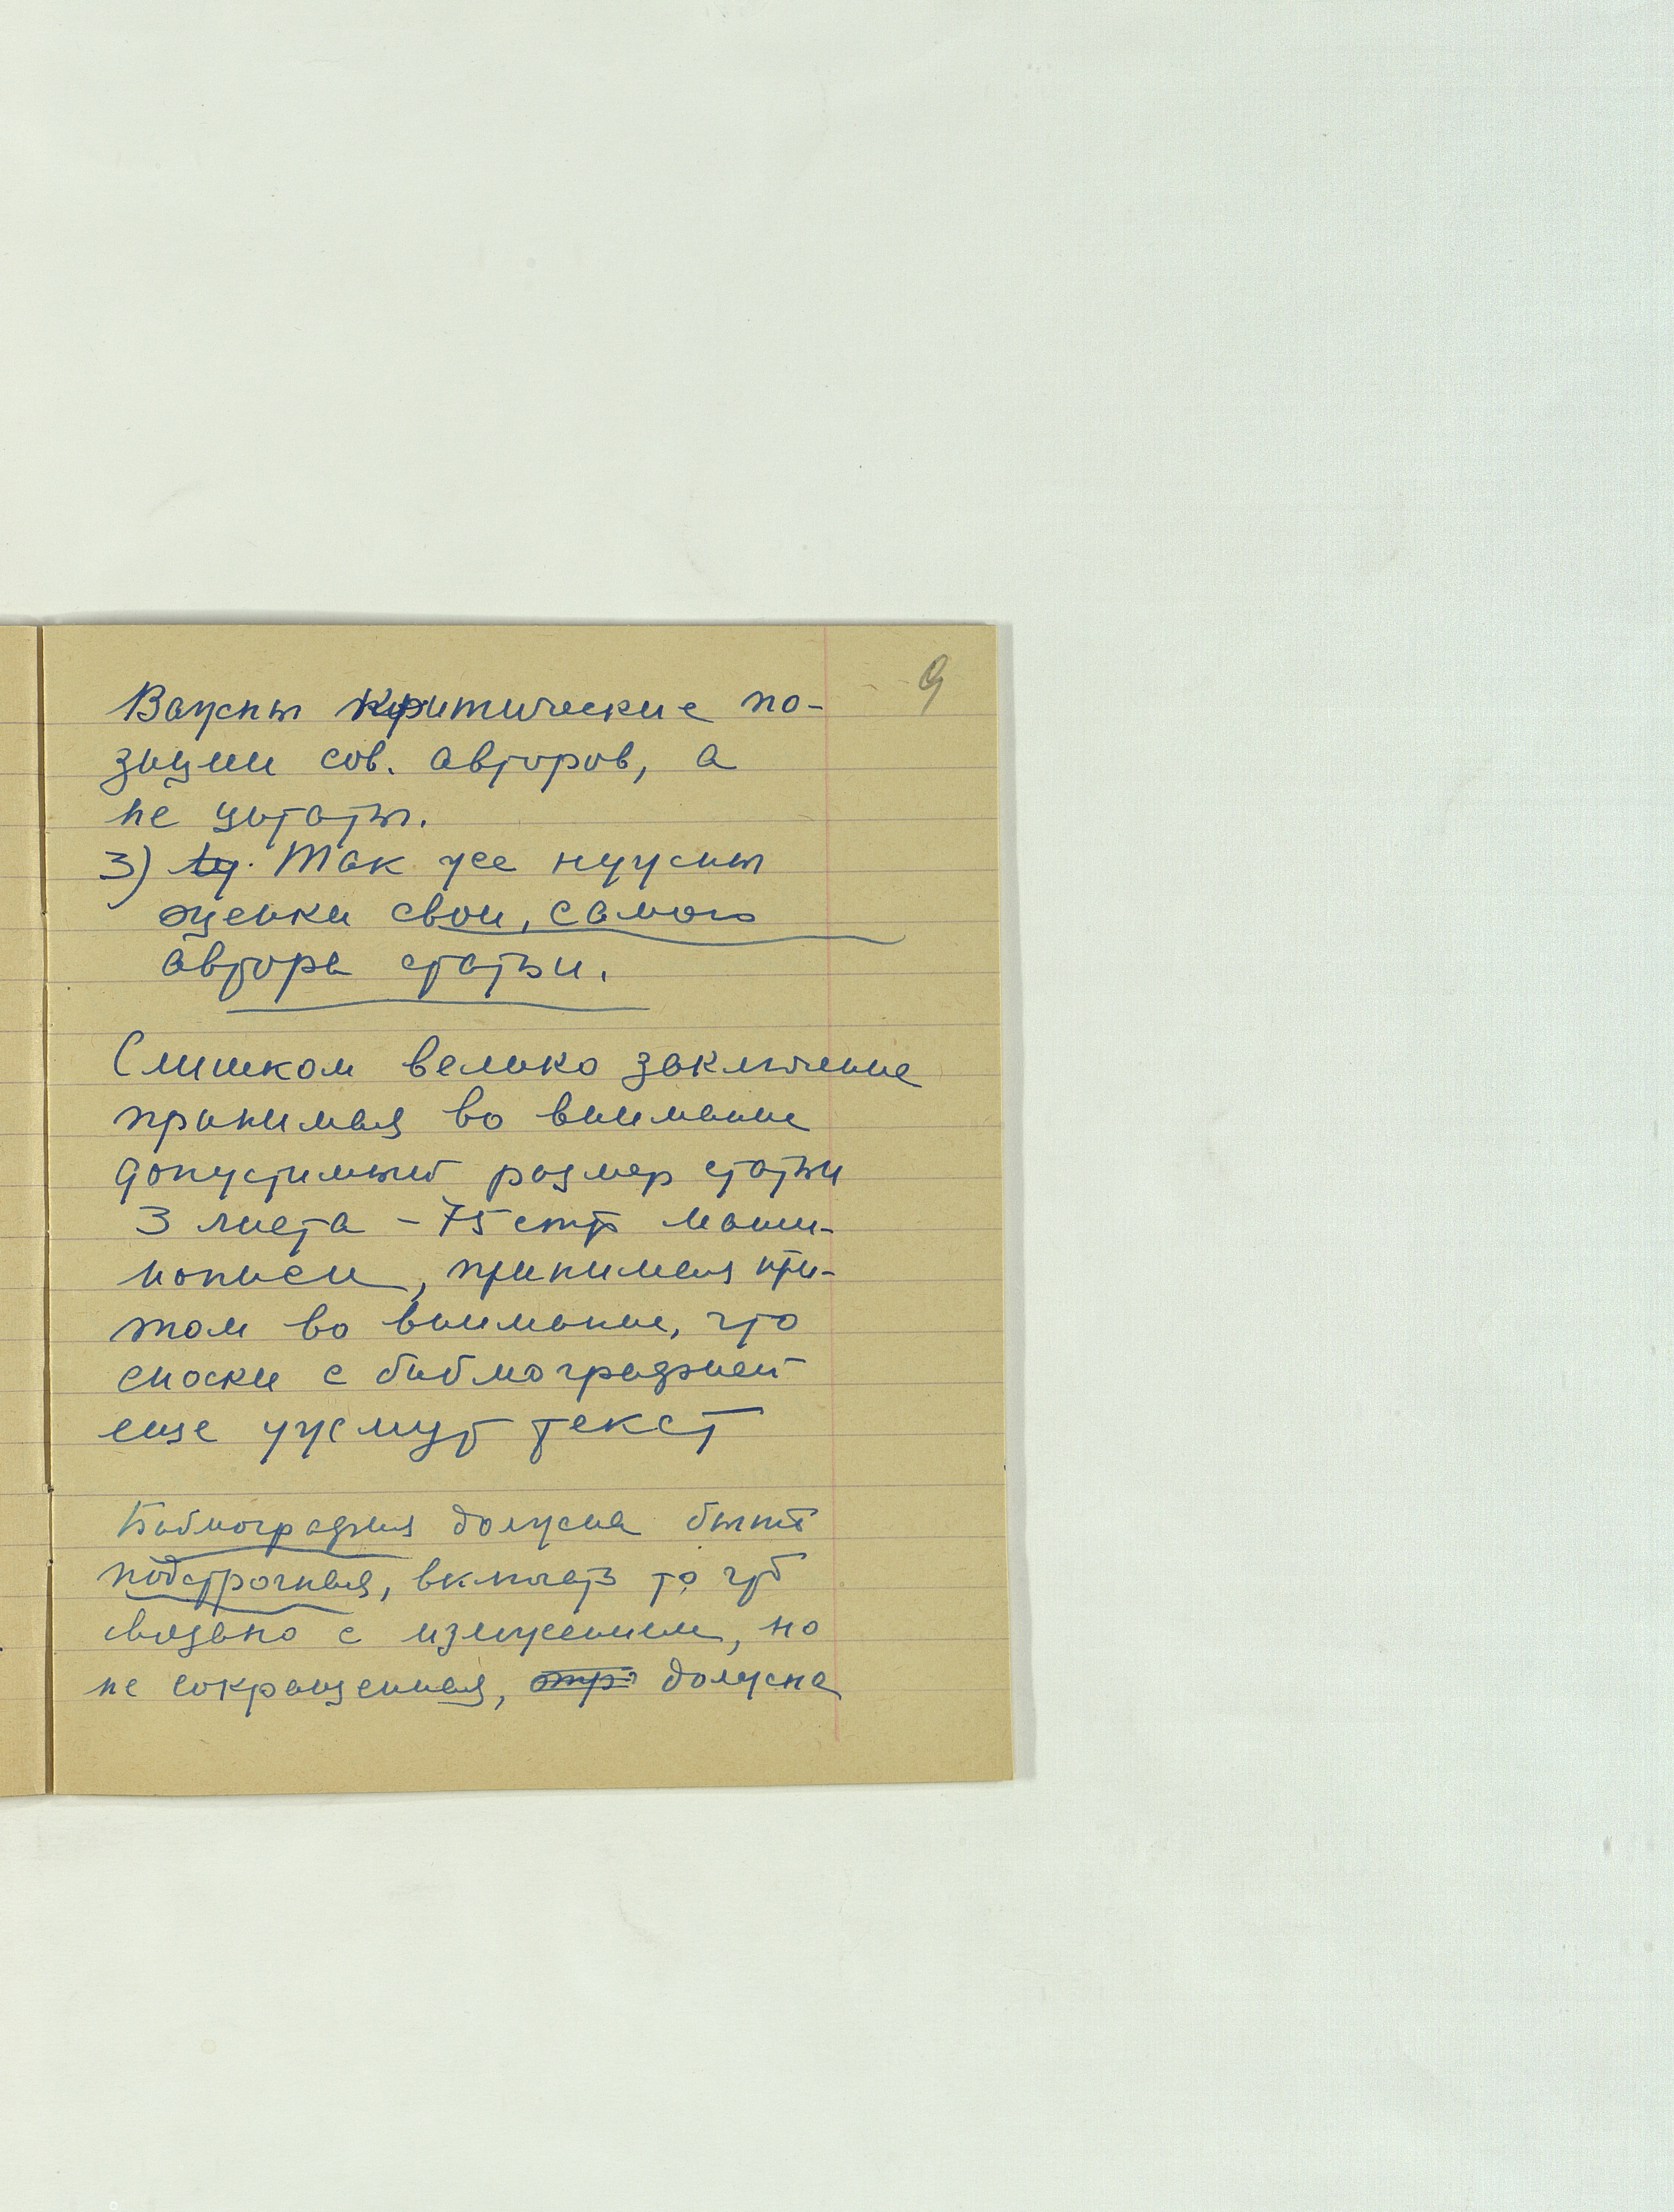 9
Важны критические по-
зиции сов. авторов, а
не цитаты.
3) Так же нужны
оценки свои, самого
автора статьи.
Слишком велико заключение
принимая во внимание
допустимый размер статьи
3 листа - 75 стр маши-
нописи, принимая при-
том во внимание, что
сноски с библиографией
еще ужмут текст
Библиография должна быть
подстрочная, включать то что
связано с изложением, но
не сокращенная, должна